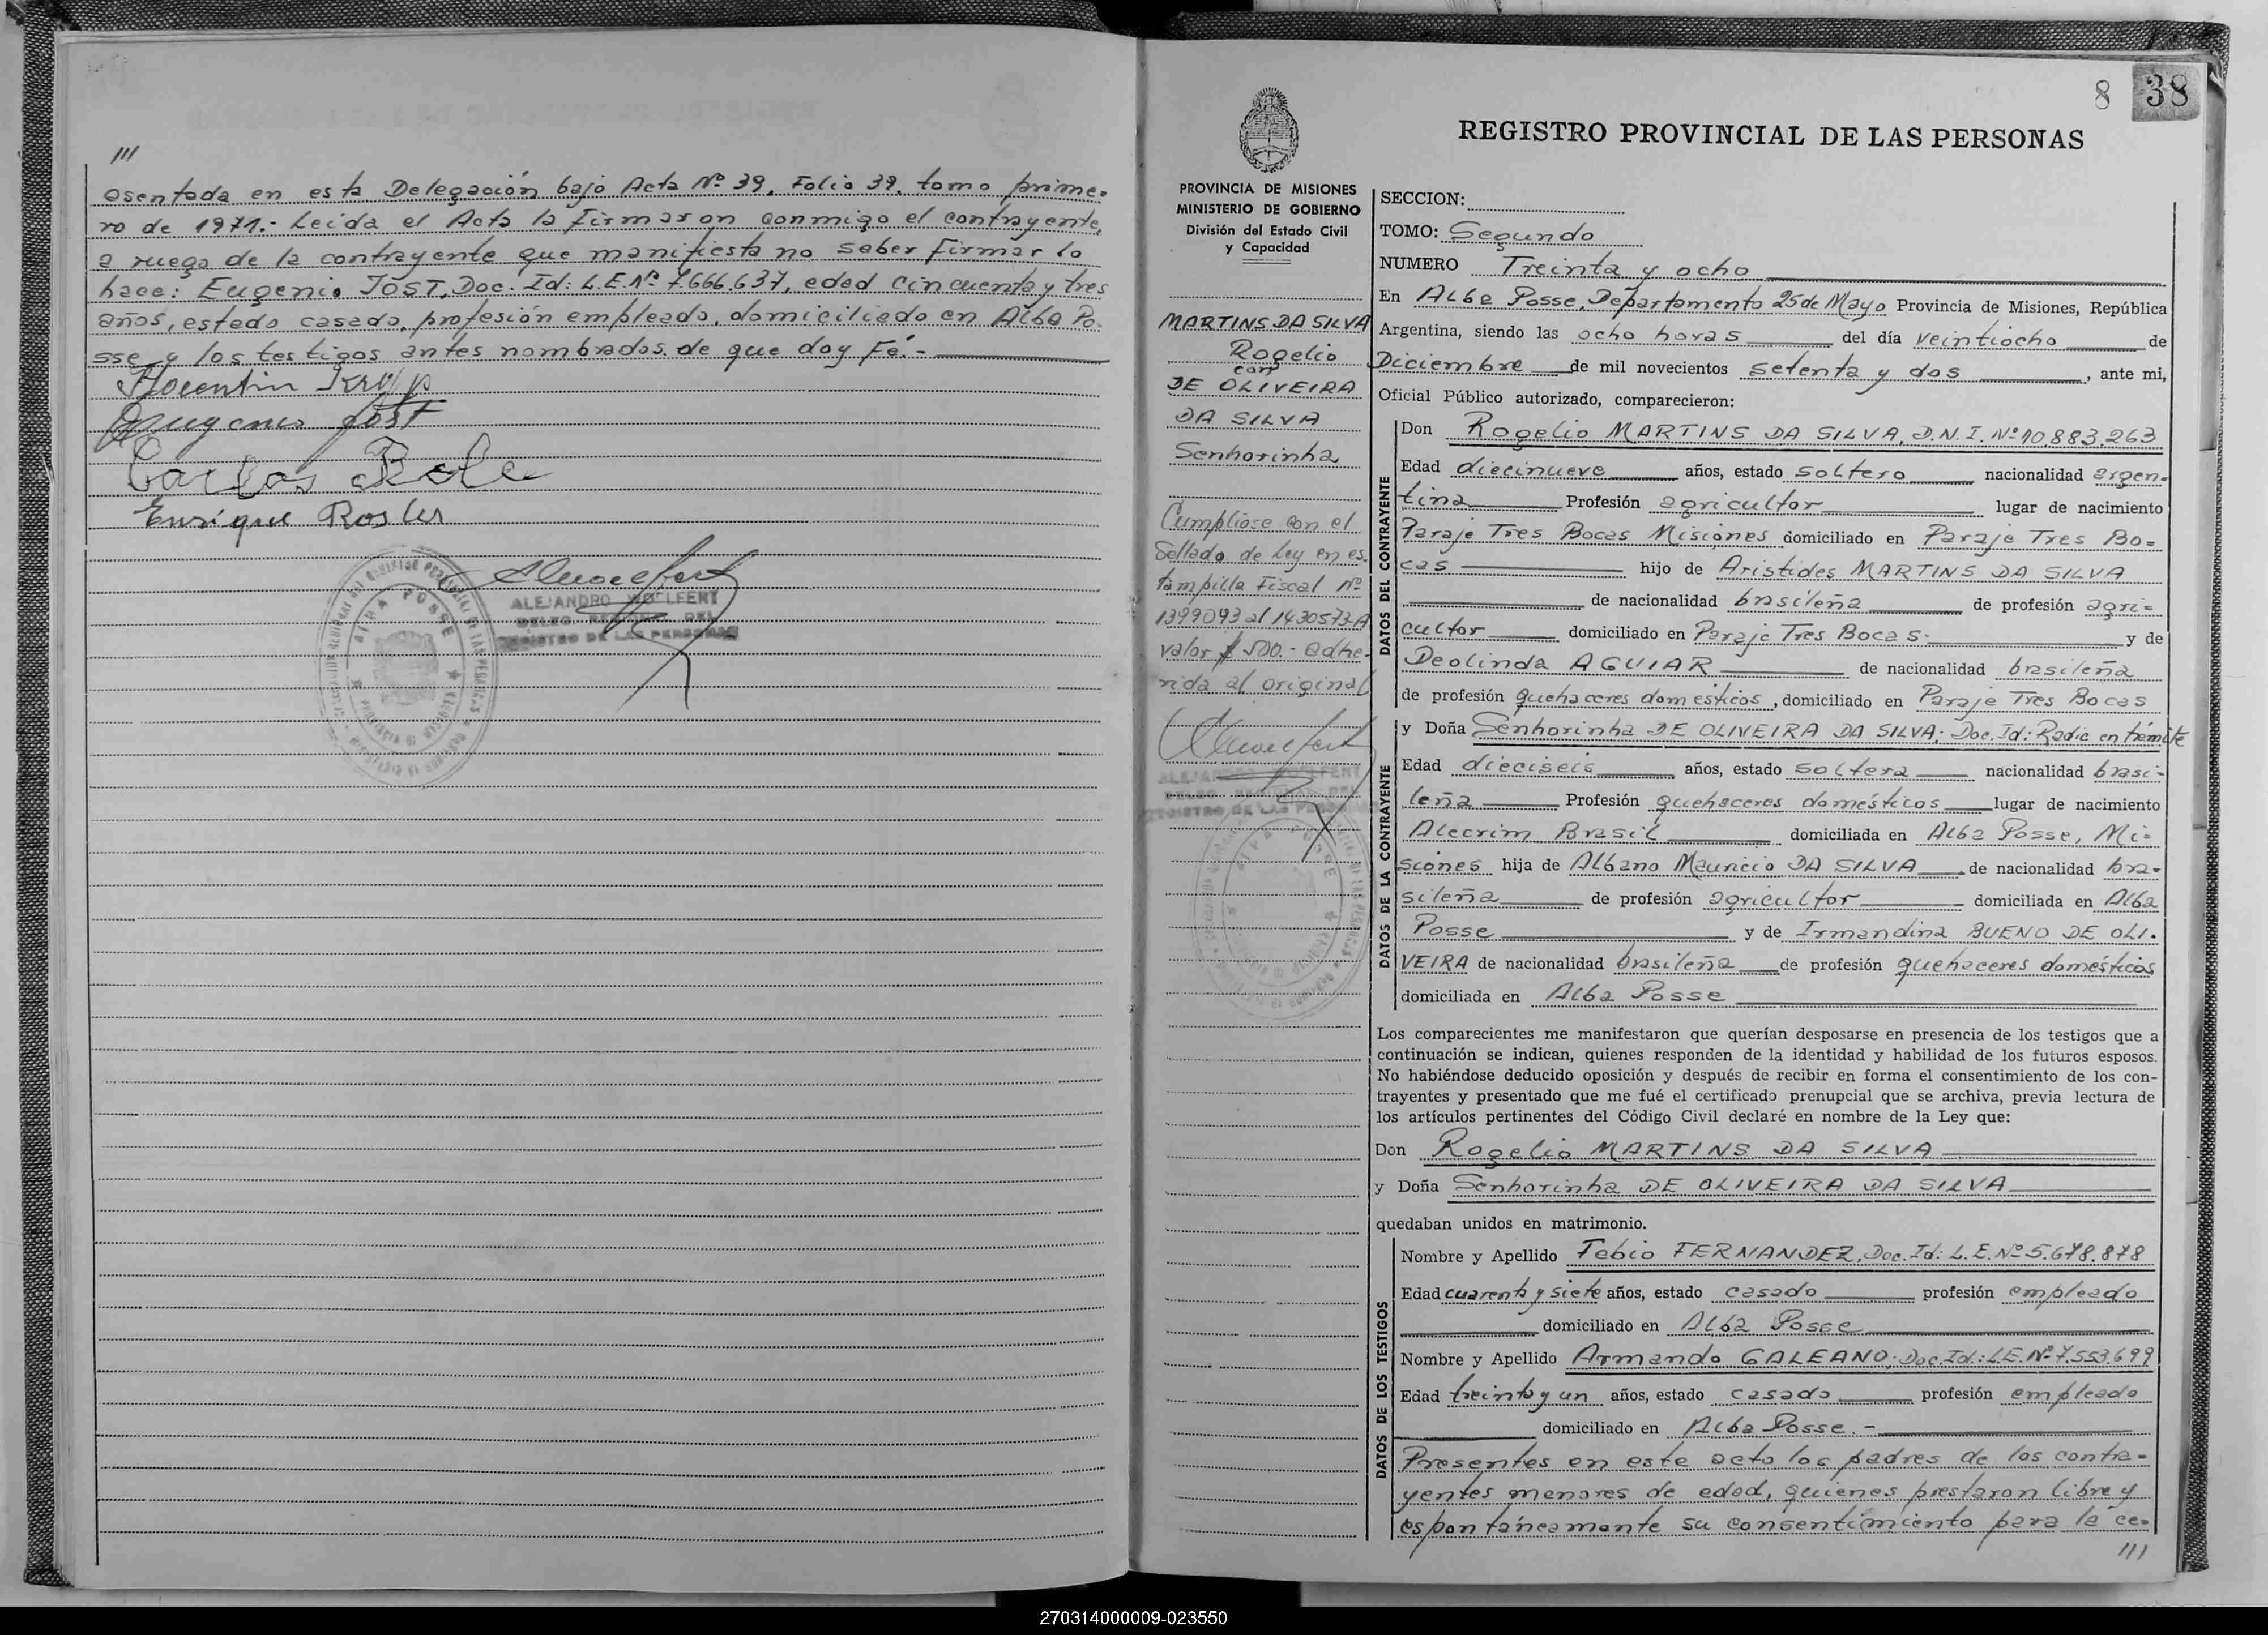 ///
asentada en esta Delegación bajo Acta Nº 39, Folio 39, tomo prime-
ro de 1971.- Leida el Acta la firmaron conmigo el contrayente,
a ruego de la contrayente que manifiesta no saber firmar lo
hace: Eugenio JOST, Doc. Id: L.E.Nº 7.666.637, edad cincuenta y tres
años, estado casado, profesión empleado, domiciliado en Alba Po-
sse y los testigos antes nombrados de que doy Fé.-
Florentin
Eugenio Jost
Carlos
Enrique Rosler
ALEJANDRO WOLFERT
DELEG. DEL
REGISTRO DE LAS PERSONAS
ALBA POSSE
8 38
REGISTRO PROVINCIAL DE LAS PERSONAS
PROVINCIA DE MISIONES
MINISTERIO DE GOBIERNO
División del Estado Civil
y Capacidad
MARTINS DA SILVA
Rogelio
con
DE OLIVEIRA
DA SILVA
Senhorinha
Cumpliose con el
Sellado de Ley en es-
tampilla Fiscal Nº
1399093 al 1430573-A
valor $ 500.- adhe-
rida al original
SECCION:
TOMO: Segundo
NUMERO Treinta y ocho
En Alba Posse, Departamento 25 de Mayo Provincia de Misiones, República
Argentina, siendo las ocho horas del día veintiocho de
Diciembre de mil novecientos setenta y dos, ante mi,
Oficial Público autorizado, comparecieron:
DATOS DEL CONTRAYENTE
Don Rogelio MARTINS DA SILVA, D.N.I. Nº 10.883.263
Edad diecinueve años, estado soltero nacionalidad argen-
tina Profesión agricultor lugar de nacimiento
Paraje Tres Bocas Misiones domiciliado en Paraje Tres Bo-
cas hijo de Aristides MARTINS DA SILVA
de nacionalidad brasileña de profesión agri-
cultor domiciliado en Paraje Tres Bocas.- y de
Deolinda AGUIAR de nacionalidad brasileña
de profesión quehaceres domesticos, domiciliado en Paraje Tres Bocas
DATOS DE LA CONTRAYENTE
y Doña Senhorinha DE OLIVEIRA DA SILVA; Doc. Id: Radic en trámite
Edad dieciseis años, estado soltera nacionalidad brasi-
leña Profesión quehaceres domésticos lugar de nacimiento
Alecrim Brasil domiciliada en Alba Posse, Mi-
siones hija de Albano Mauricio DA SILVA de nacionalidad bra-
sileña de profesión agricultor domiciliada en Alba
Posse y de Irmandina BUENO DE OLI-
VEIRA de nacionalidad brasileña de profesión quehaceres domésticos
domiciliada en Alba Posse
Los comparecientes me manifestaron que querían desposarse en presencia de los testigos que a
continuación se indican, quienes responden de la identidad y habilidad de los futuros esposos.
No habiéndose deducido oposición y después de recibir en forma el consentimiento de los con-
trayentes y presentado que me fué el certificado prenupcial que se archiva, previa lectura de
los artículos pertinentes del Código Civil declaré en nombre de la Ley que:
Don Rogelio MARTINS DA SILVA
y Doña Senhorinha DE OLIVEIRA DA SILVA
quedaban unidos en matrimonio.
DATOS DE LOS TESTIGOS
Nombre y Apellido Febio FERNANDEZ, Doc. Id: L.E. Nº 5.678.878
Edad cuarenta y siete años, estado casado profesión empleado
domiciliado en Alba Posse
Nombre y Apellido Armando GALEANO; Doc. Id.: L.E. Nº 7.553.699
Edad treinta y un años, estado casado profesión empleado
domiciliado en Alba Posse.-
Presentes en este acto los padres de los contra-
yentes menores de edad, quienes prestaron libre y
espontáneamente su consentimiento para la ce-
///
270314000009-023550